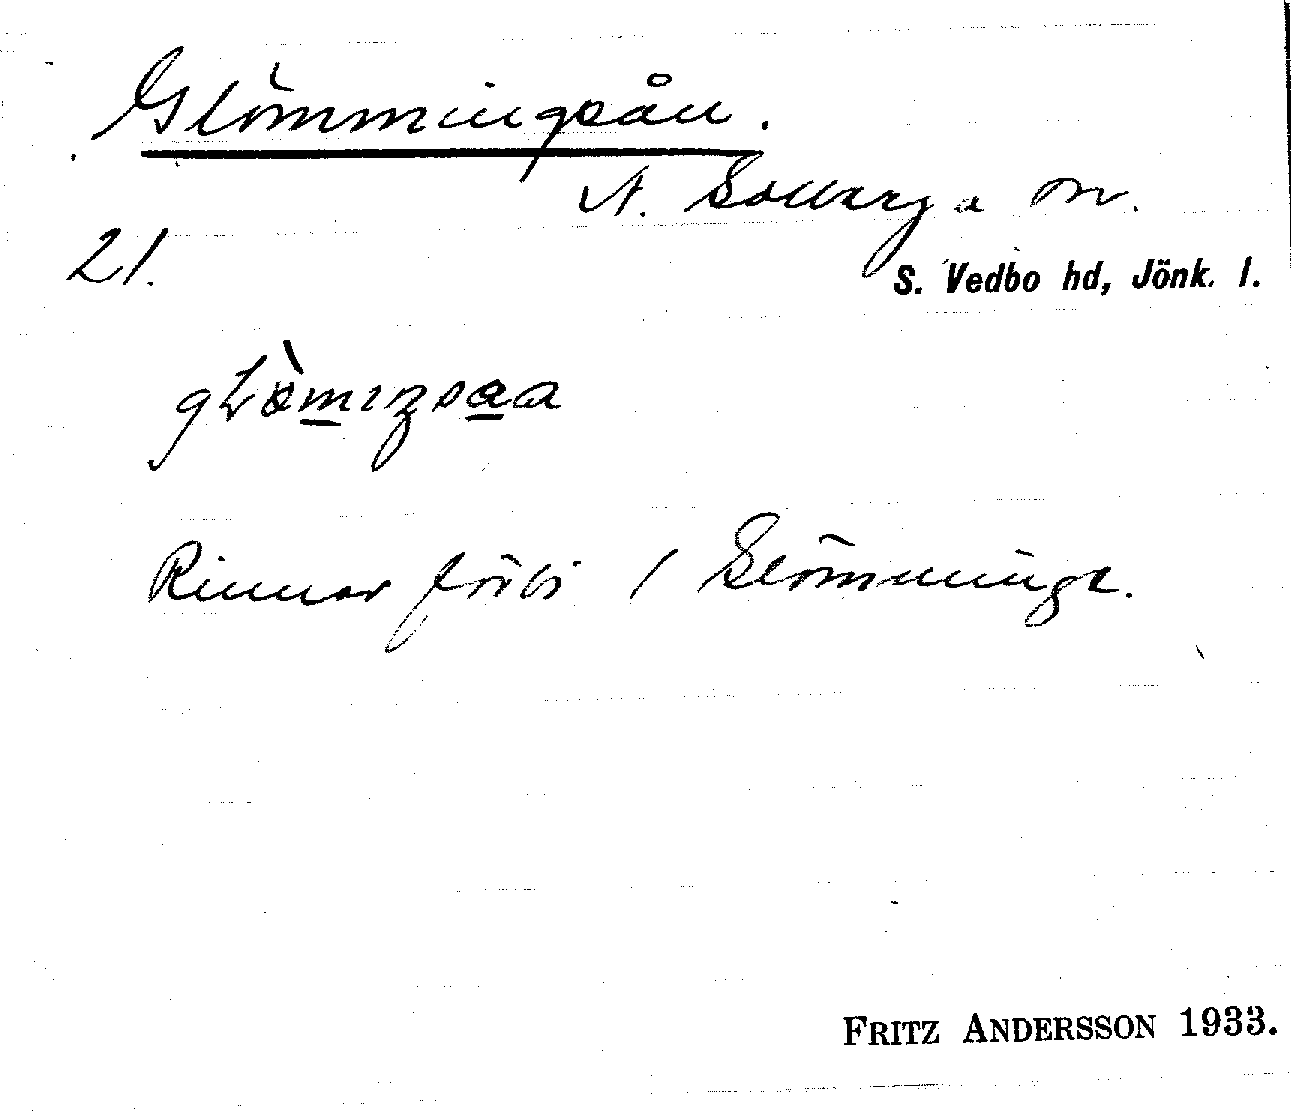 Glömmingsån.
N. Solberga sn.
21.
S. Vedbo hd, Jönk. l.
Rinner förbi / Glömminge.
FRITZ ANDERSSON 1933.